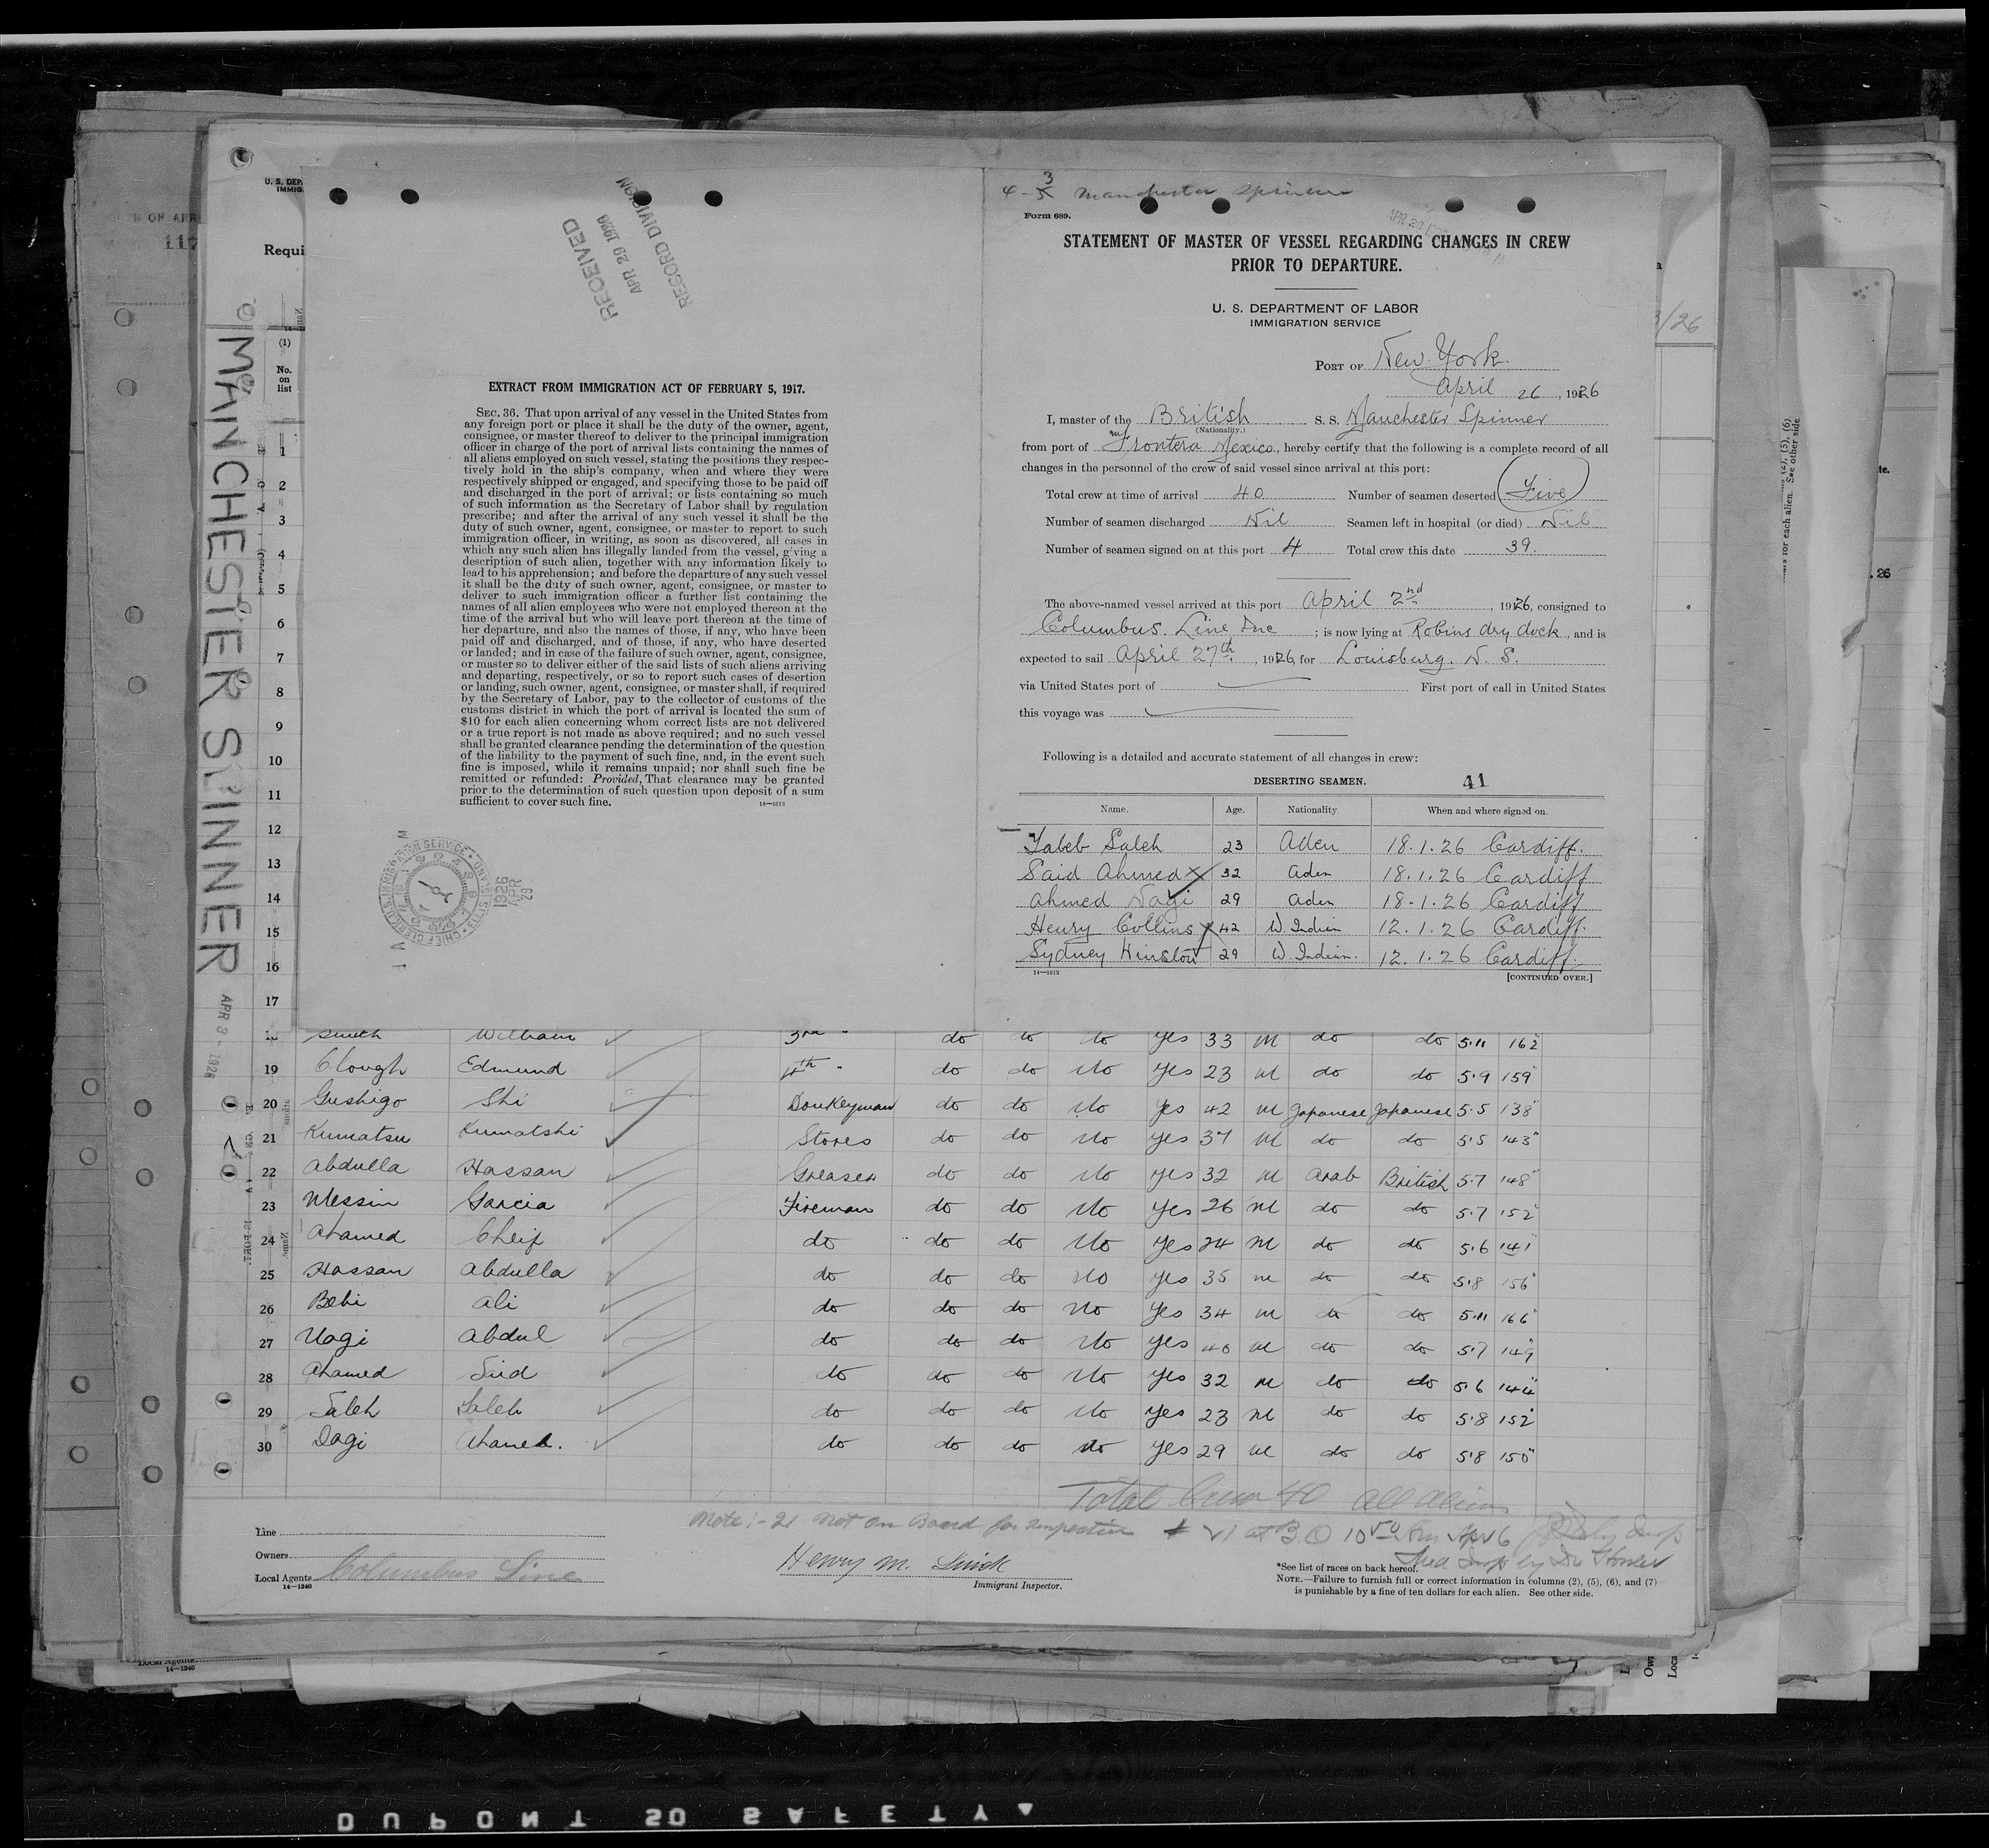 U. S. DEP
IMMIG
Requi
MANCHESTER SPINNER
APR 3 - 1926
RECEIVED
APR 29 1926
RECORD DIVISION
EXTRACT FROM IMMIGRATION ACT OF FEBRUARY 5, 1917.
SEC. 36. That upon arrival of any vessel in the United States from
any foreign port or place it shall be the duty of the owner, agent,
consignee, or master thereof to deliver to the principal immigration
officer in charge of the port of arrival lists containing the names of
all aliens employed on such vessel, stating the positions they respec-
tively hold in the ship's company, when and where they were
respectively shipped or engaged, and specifying those to be paid off
and discharged in the port of arrival; or lists containing so much
of such information as the Secretary of Labor shall by regulation
prescribe; and after the arrival of any such vessel it shall be the
duty of such owner, agent, consignee, or master to report to such
immigration officer, in writing, as soon as discovered, all cases in
which any such alien has illegally landed from the vessel, giving a
description of such alien, together with any information likely to
lead to his apprehension; and before the departure of any such vessel
it shall be the duty of such owner, agent, consignee, or master to
deliver to such immigration officer a further list containing the
names of all alien employees who were not employed thereon at the
time of the arrival but who will leave port thereon at the time of
her departure, and also the names of those, if any, who have been
paid off and discharged, and of those, if any, who have deserted
or landed; and in case of the failure of such owner, agent, consignee,
or master so to deliver either of the said lists of such aliens arriving
and departing, respectively, or so to report such cases of desertion
or landing, such owner, agent, consignee, or master shall, if required
by the Secretary of Labor, pay to the collector of customs of the
customs district in which the port of arrival is located the sum of
$10 for each alien concerning whom correct lists are not delivered
or a true report is not made as above required; and no such vessel
shall be granted clearance pending the determination of the question
of the liability to the payment of such fine, and, in the event such
fine is imposed, while it remains unpaid; nor shall such fine be
remitted or refunded: Provided, That clearance may be granted
prior to the determination of such question upon deposit of a sum
sufficient to cover such fine.
14—1613
1926
APR
29
4-3 Manchester Spinner
Form 689.
STATEMENT OF MASTER OF VESSEL REGARDING CHANGES IN CREW
PRIOR TO DEPARTURE.
U. S. DEPARTMENT OF LABOR
IMMIGRATION SERVICE
PORT OF New York.
April 26, 1926
I, master of the British S. S. Manchester Spinner
(Nationality.)
from port of Frontera Mexico, hereby certify that the following is a complete record of all
changes in the personnel of the crew of said vessel since arrival at this port:
Total crew at time of arrival 40 Number of seamen deserted Five
Number of seamen discharged Nil Seamen left in hospital (or died) Nil
Number of seamen signed on at this port 4 Total crew this date 39.
The above-named vessel arrived at this port April 2nd, 1926, consigned to
Columbus Line Inc; is now lying at Robins dry dock, and is
expected to sail April 27th, 1926, for Louisburg. N. S.
via United States port of First port of call in United States
this voyage was
Following is a detailed and accurate statement of all changes in crew:
DESERTING SEAMEN. 41
Name. Age. Nationality When and where signed on.
Tabeb Saleh 23 Aden 18.1.26 Cardiff.
Said Ahmed 32 Aden 18.1.26 Cardiff
Ahmed Nagi 29 Aden 18.1.26 Cardiff
Henry Collins 42 W. Indian 12.1.26 Cardiff.
Sydney Winston 29 W. Indian. 12.1.26 Cardiff.
14—1613 [CONTINUED OVER.]
(1)
No.
on
list
1
2
3
4
5
6
7
8
9
10
11
12
13
14
15
16
17
Smith William 3rd " do do No Yes 33 M do do 5.11 162
19 Clough Edmund 4th " do do No Yes 23 M do do 5.9 159
20 Gushigo Shi Donkeyman do do No Yes 42 M Japanese Japanese 5.5 138
21 Kumatsu Kumatshi Stores do do No Yes 37 M do do 5.5 143
22 Abdulla Hassan Greaser do do No Yes 32 M Arab British 5.7 148
23 Messin Garcia Fireman do do No Yes 26 M do do 5.7 152
24 Ahamed Cheif do do do No Yes 24 M do do 5.6 141
25 Hassan Abdulla do do do No Yes 35 M do do 5.8 156
26 Behi Ali do do do No Yes 34 M do do 5.11 166
27 Nagi Abdul do do do No Yes 40 M do do 5.7 149
28 Ahamed Sied do do do No Yes 32 M do do 5.6 144
29 Saleh Saleh do do do No Yes 23 M do do 5.8 152
30 Dagi Ahamed. do do do No Yes 29 M do do 5.8 150
Total Crew 40 all aliens
Note:- 21 not on Board for inspection
Line
Owners
Local Agents Columbus Line
14—1240
Henry M.
Immigrant Inspector.
*See list of races on back hereof.
NOTE.—Failure to furnish full or correct information in columns (2), (5), (6), and (7)
is punishable by a fine of ten dollars for each alien. See other side.
Local Agents
14—1240
DUPONT SAFETY